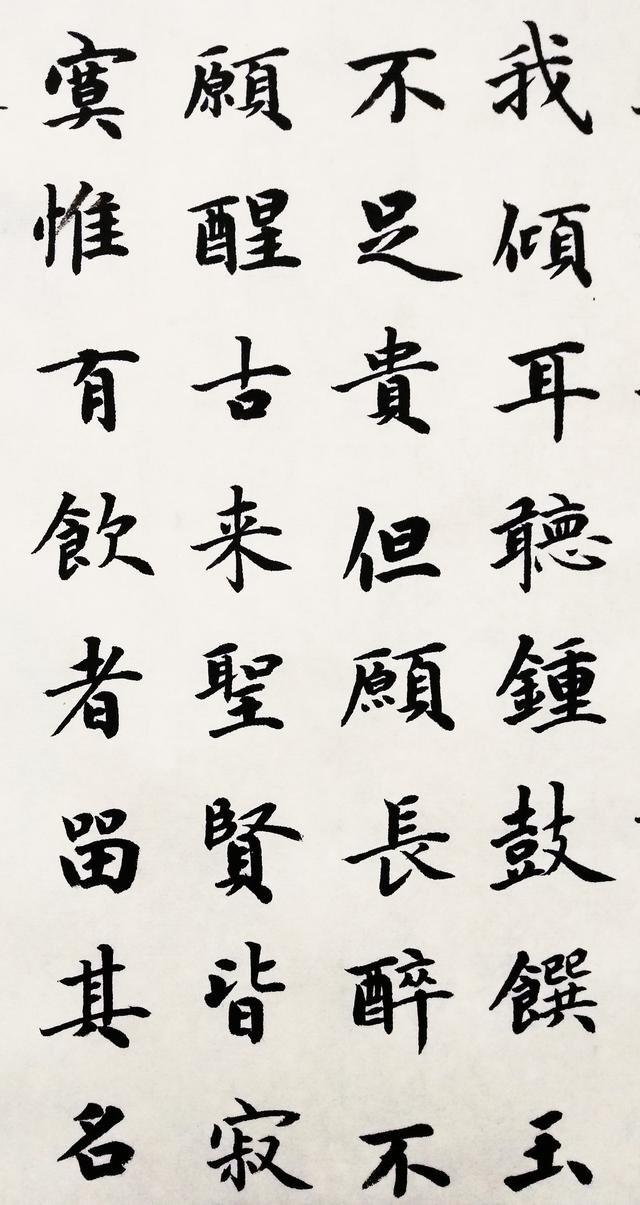 我傾耳聽鍾鼓饌玉
不足貴但願長醉不
願醒古来聖賢皆寂
寞惟有飲者留其名